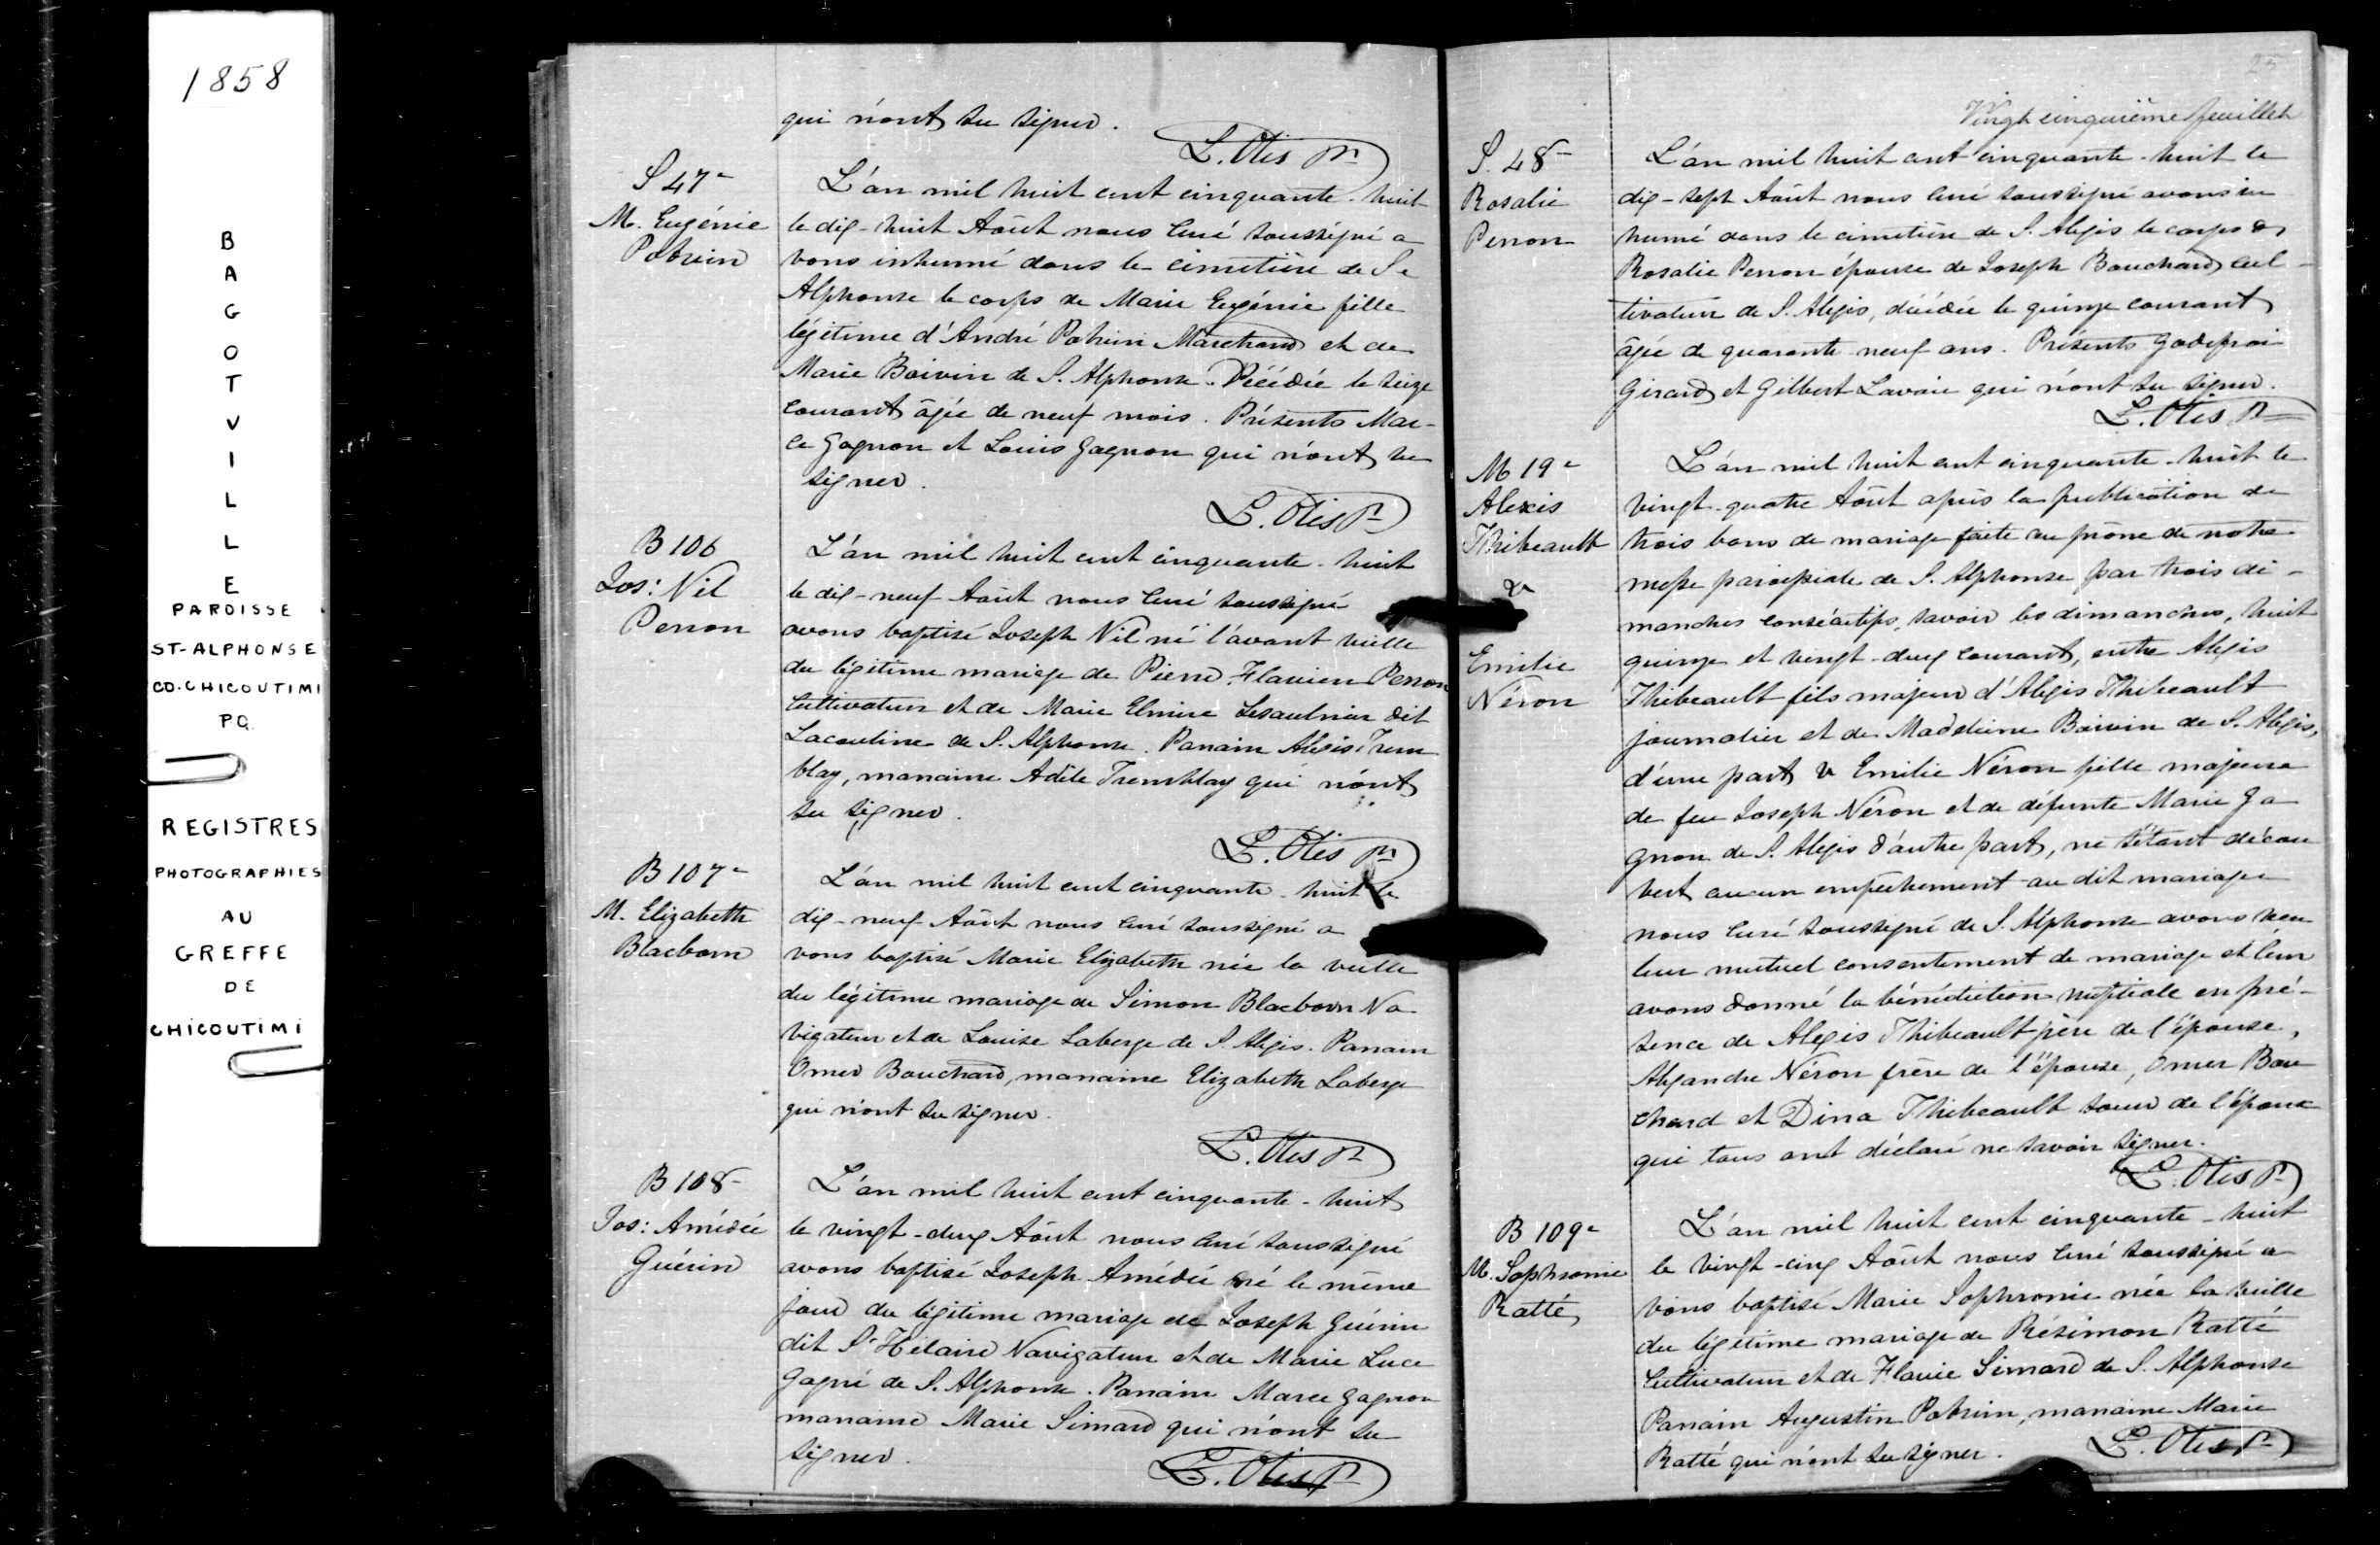 1858
BAGOTVILLE
PAROISSE
ST-ALPHONSE
CO. CHICOUTIMI
PQ.
REGISTRES
PHOTOGRAPHIES
AU
GREFFE
DE
CHICOUTIMI
qui n'ont su signer.
L. Otis Ptr
S 47e
M. Eugénie
Potvin
L'an mil huit cent cinquante-huit
le dix-huit Août nous Curé soussigné a
vons inhumé dans le cimetière de St
Alphonse le corps de Marie Eugénie fille
légitime d'André Potvin Marchand et de
Marie Boivin de S. Alphonse. Décédée le seize
courant âgée de neuf mois. Présents Mar-
ce Gagnon et Louis Gagnon qui n'ont su
signer.
L. Otis Ptr
B 106
Jos: Nil
Perron
L'an mil huit cent cinquante-huit
le dix-neuf Août nous Curé soussigné
avons baptisé Joseph Nil né l'avant veille
du légitime mariage de Pierre Flavien Perron
Cultivateur et de Marie Elmire Lesaulnier dit
Lacouline de S. Alphonse. Parrain Alexis Trem
blay, marraine Adèle Tremblay qui n'ont
su signer.
L. Otis Ptr
B 107e
M. Elizabeth
Blacborn
L'an mil huit cent cinquante-huit le
dix-neuf Août nous Curé soussigné a
vons baptisé Marie Elizabeth née la veille
du légitime mariage de Simon Blacborn Na
vigateur et de Louise Laberge de S. Alexis. Parrain
Omer Bouchard, marraine Elizabeth Laberge
qui n'ont su signer.
L. Otis Ptr
B 108
Jos: Amédée
Guérin
L'an mil huit cent cinquante-huit
le vingt-deux Août nous Curé soussigné
avons baptisé Joseph Amédée né le même
jour du légitime mariage de Joseph Guérin
dit St Hilaire Navigateur et de Marie Luce
Gagné de S. Alphonse. Parrain Marce Gagnon
marraine Marie Simard qui n'ont su
signer.
L. Otis Ptr
25
Vingt cinquième feuillet
S. 48
Rosalie
Perron
L'an mil huit cent cinquante-huit le
dix-sept Août nous Curé soussigné avons in
humé dans le cimetière de S. Alexis le corps de
Rosalie Perron épouse de Joseph Bouchard cul-
tivateur de S. Alexis, décédée le quinze courant
âgée de quarante neuf ans. Présents Godefroi
Girard et Gilbert Lavoie qui n'ont su signer.
L. Otis Ptr
M 19e
Alexis
Thibeault
&
Emilie
Néron
L'an mil huit cent cinquante-huit le
vingt-quatre Août après la publication de
trois bans de mariage faite au prône de notre
messe paroissiale de S. Alphonse par trois di-
manches consécutifs, savoir les dimanches, huit
quinze et vingt-deux courant, entre Alexis
Thibeault fils majeur d'Alexis Thibeault
journalier et de Madeleine Boivin de S. Alexis,
d'une part & Emilie Néron fille majeure
de feu Joseph Néron et de défunte Marie Ga
gnon de S. Alexis d'autre part, ne s'étant décou
vert aucun empêchement au dit mariage
nous Curé soussigné de S. Alphonse avons reçu
leur mutuel consentement de mariage et leur
avons donné la bénédiction nuptiale en pré-
sence de Alexis Thibeault père de l'épouse,
Alexandre Néron frère de l'épouse, Omer Bou
chard et Dina Thibeault soeur de l'époux
qui tous ont déclaré ne savoir signer.
L. Otis Ptr
B 109e
M. Sophronie
Ratté
L'an mil huit cent cinquante-huit
le vingt-cinq Août nous Curé soussigné a
vons baptisé Marie Sophronie née la veille
du légitime mariage de Résimon Ratté
Cultivateur et de Flavie Simard de S. Alphonse
Parrain Augustin Potvin, marraine Marie
Ratté qui n'ont su signer.
L. Otis Ptr